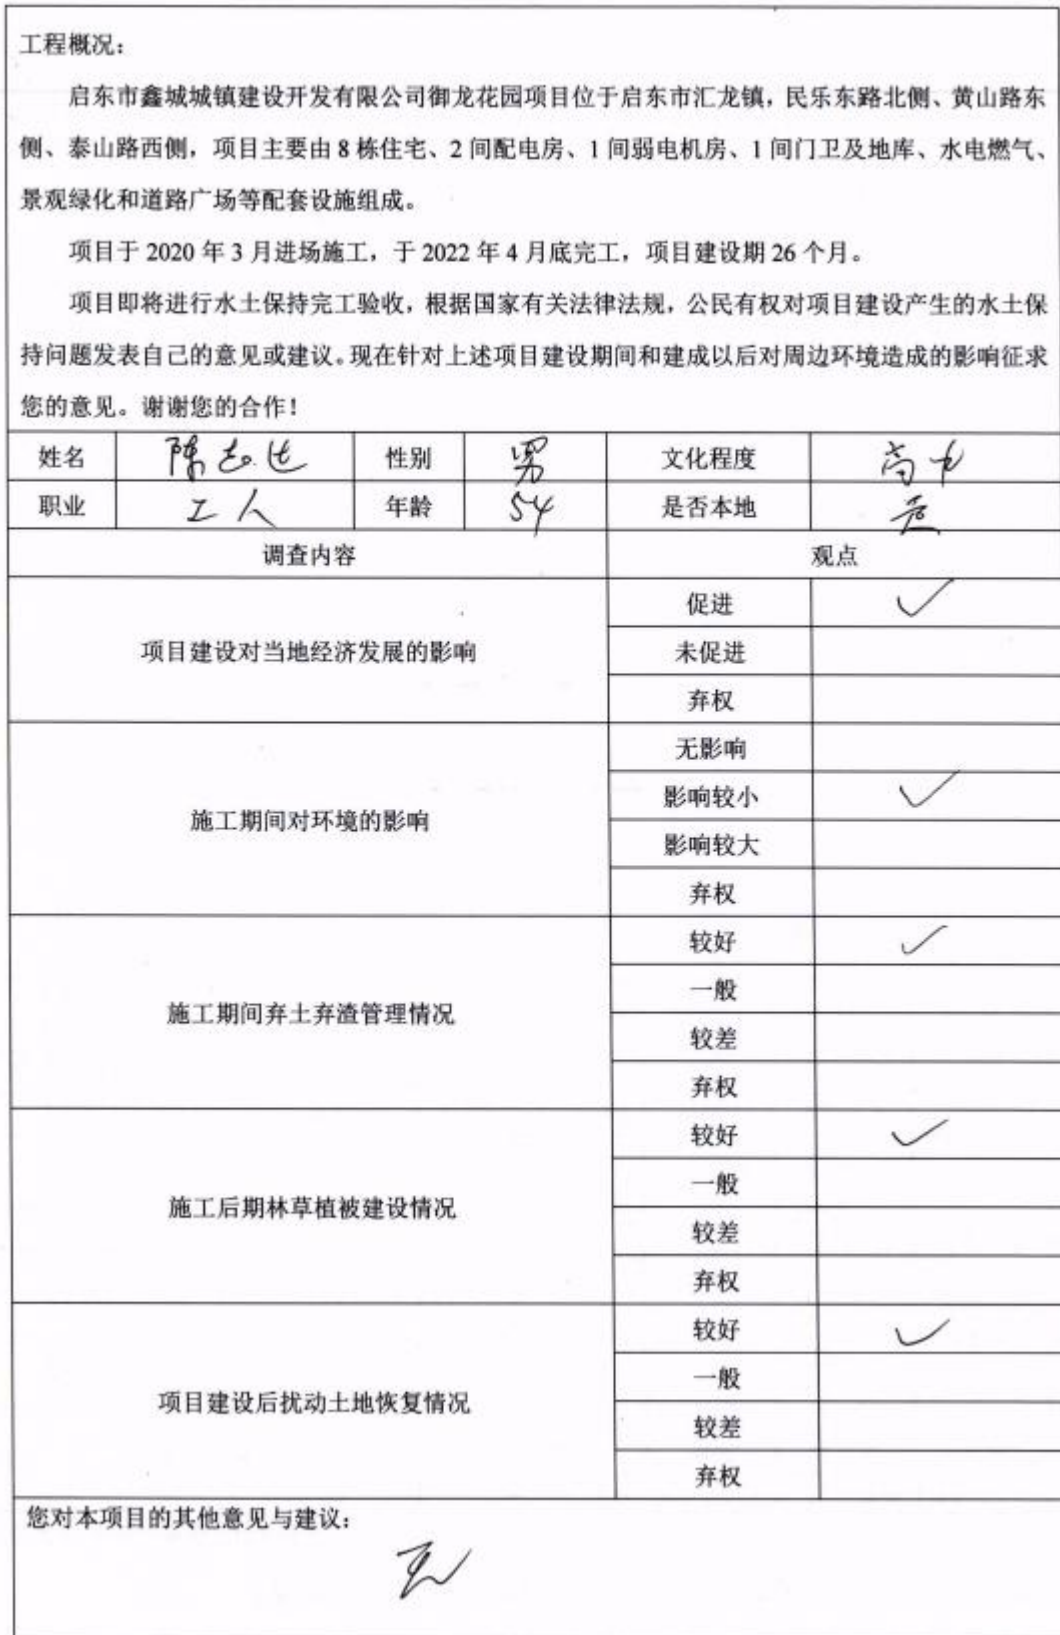 工程概况：
启东市鑫城城镇建设开发有限公司御龙花园项目位于启东市汇龙镇，民乐东路北侧、黄山路东
侧、泰山路西侧，项目主要由 8 栋住宅、2 间配电房、1 间弱电机房、1 间门卫及地库、水电燃气、
景观绿化和道路广场等配套设施组成。
项目于 2020 年 3 月进场施工，于 2022 年 4 月底完工，项目建设期 26 个月。
项目即将进行水土保持完工验收，根据国家有关法律法规，公民有权对项目建设产生的水土保
持问题发表自己的意见或建议。现在针对上述项目建设期间和建成以后对周边环境造成的影响征求
您的意见。谢谢您的合作！
姓名 陈 性别 男 文化程度 高中
职业 工人 年龄 54 是否本地 是
调查内容 观点
项目建设对当地经济发展的影响
促进 ✓
未促进
弃权
施工期间对环境的影响
无影响
影响较小 ✓
影响较大
弃权
施工期间弃土弃渣管理情况
较好 ✓
一般
较差
弃权
施工后期林草植被建设情况
较好 ✓
一般
较差
弃权
项目建设后扰动土地恢复情况
较好 ✓
一般
较差
弃权
您对本项目的其他意见与建议：
无